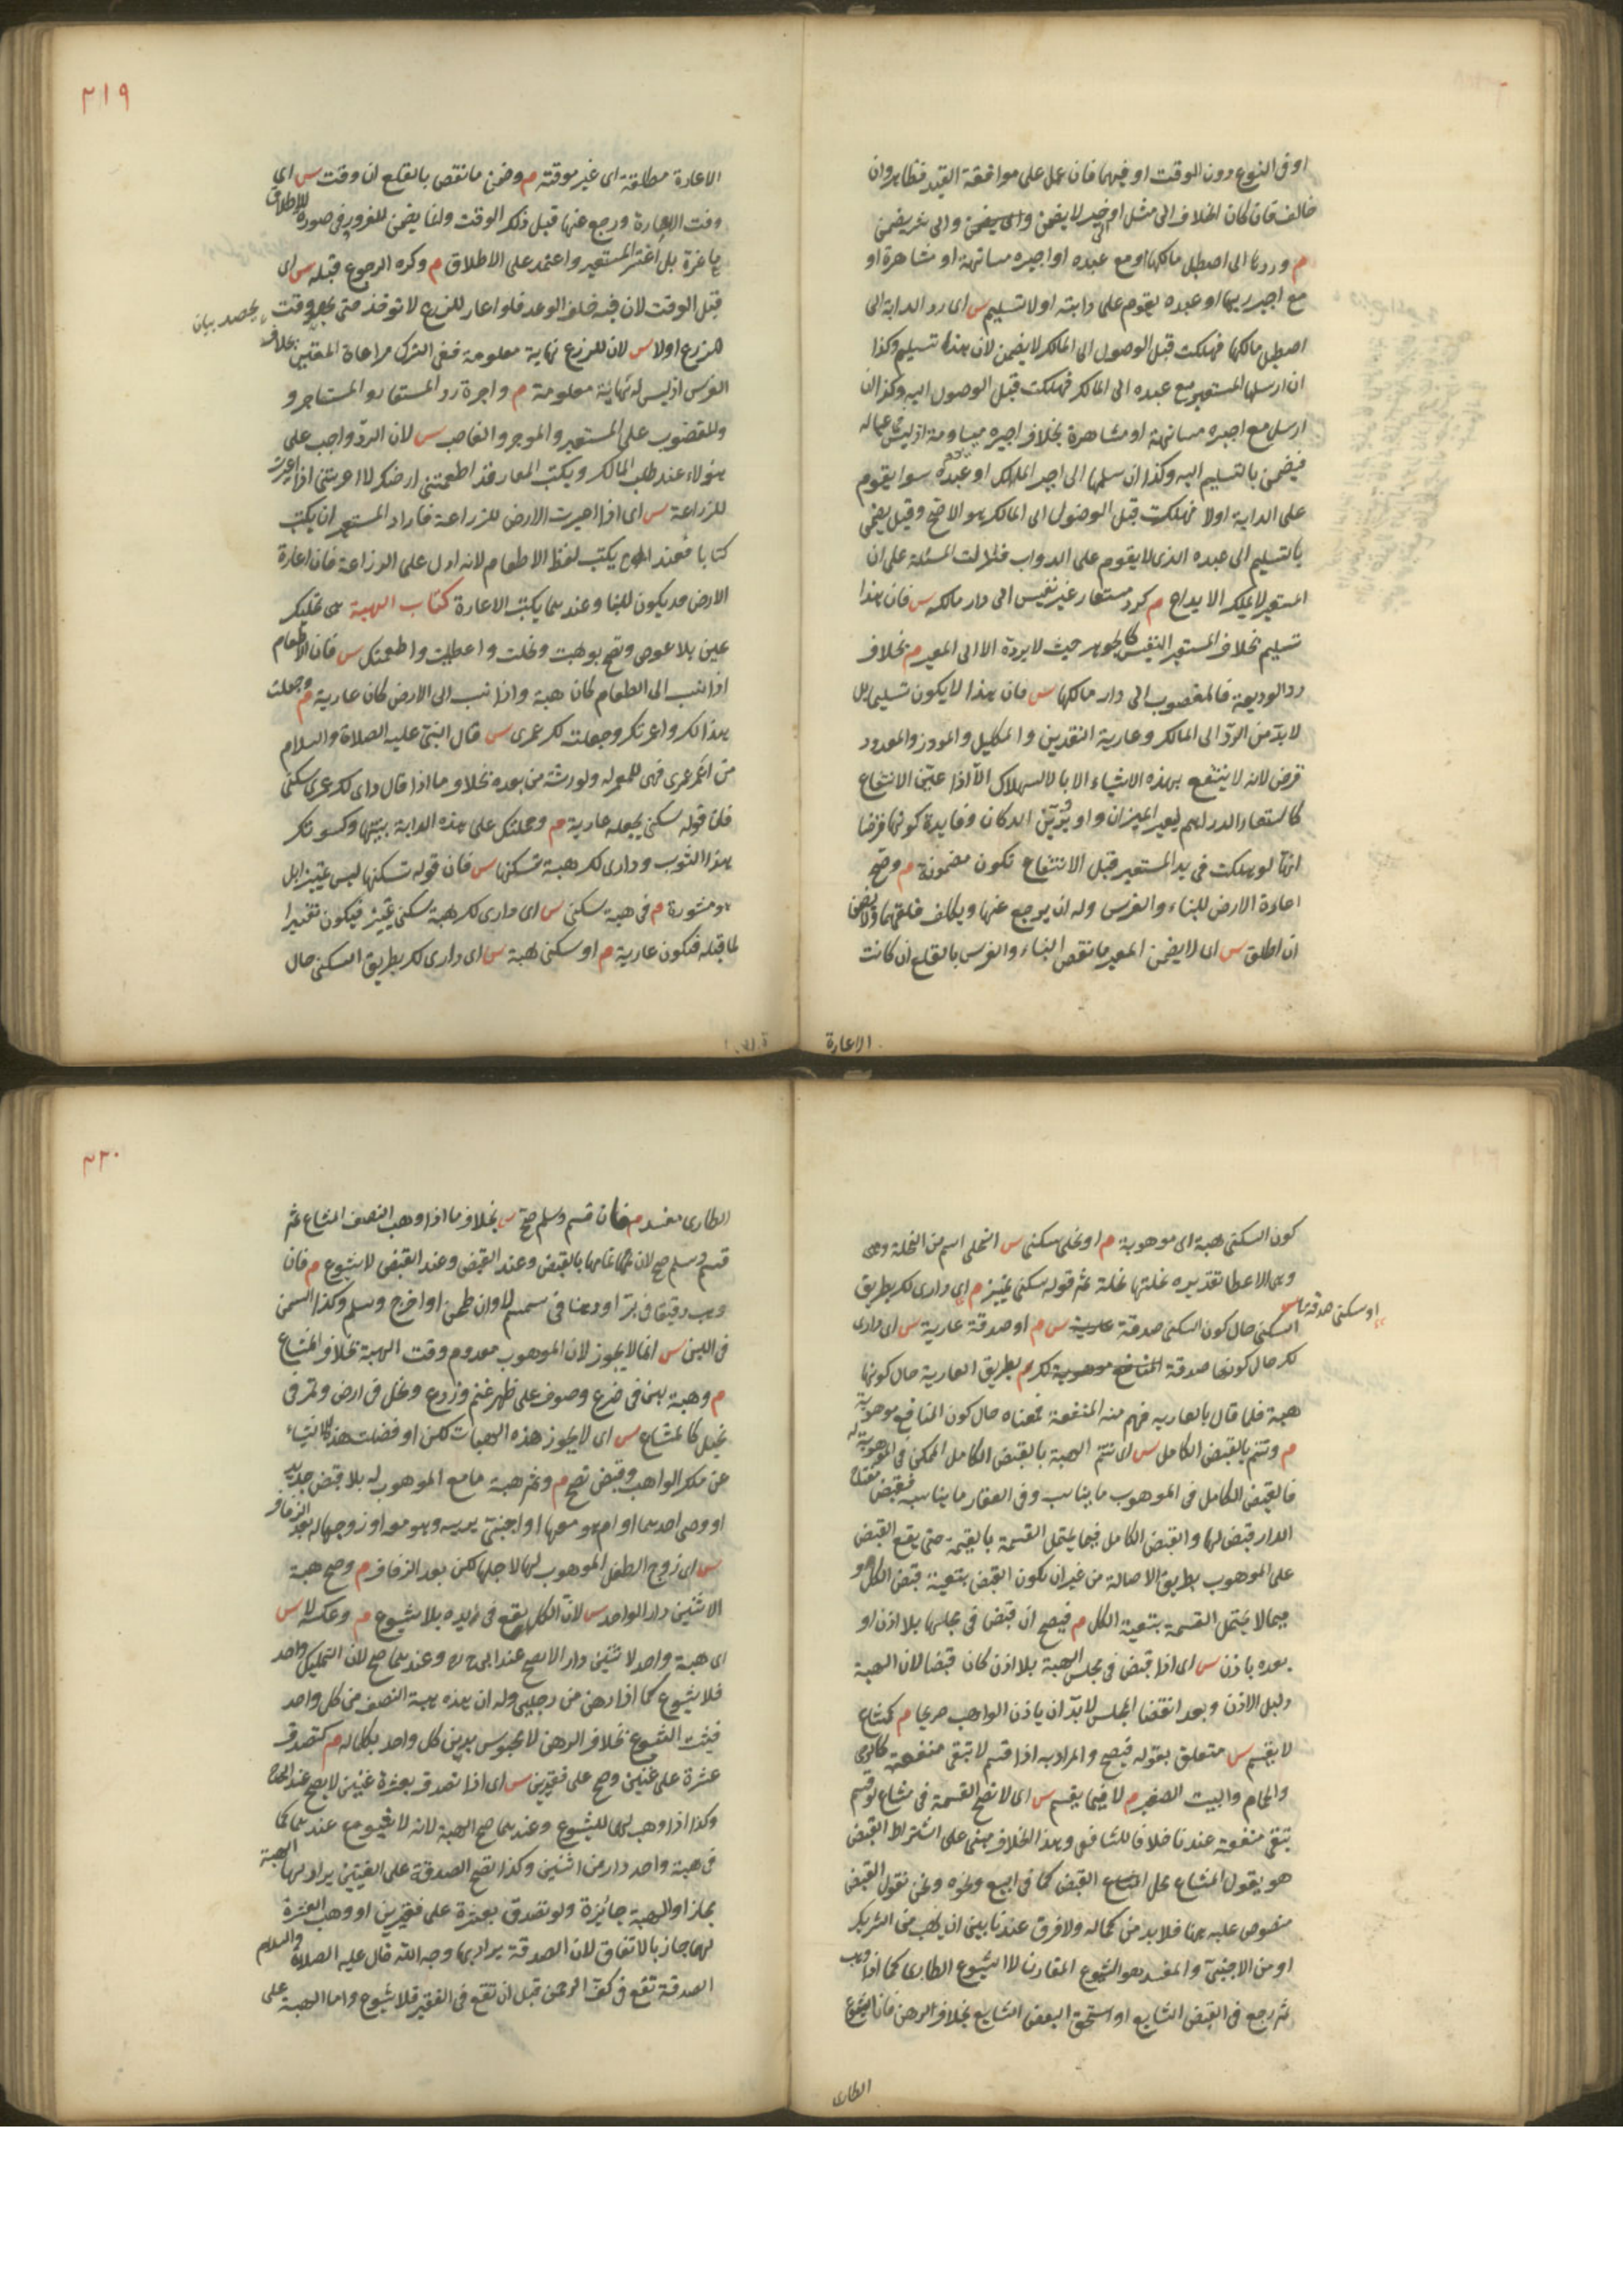 او فى النوع دون الوقت او فيهما فان عمل على موافقة القيد فظاهر وان
خالف فان كان الخلاف الى مثل او خير لا يضمن والى شر يضمن
م وردها الى اصطبل مالكها او مع عبده او اجيره مسانهة او مشاهرة او
مع اجير ربها او عبده يقوم على دابته اولا تسليم س اى رد الدابة الى
اصطبل مالكها فهلكت قبل الوصول الى المالك لا يضمن لان هذا تسليم وكذا
ان ارسلها المستعير مع عبده الى المالك فهلكت قبل الوصول اليه وكذا ان
ارسل مع اجيره مسانهة او مشاهرة بخلاف اجيره مياومة اذ ليس عياله
فيضمن بالتسليم اليه وكذا ان سلمها الى اجير المالك او عبده سوا يقوم
على الدابة اولا فهلكت قبل الوصول الى المالك هو الاصح وقيل يضمن
بالتسليم الى عبده الذى لا يقوم على الدواب فدلت المسئلة على ان
المستعير لا يملك الايداع م كرد مستعار غير نفيس الى دار مالكه س فان هذا
تسليم بخلاف المستعير النفيس كالجوهر حيث لا يرده الا الى المعير م بخلاف
رد الوديعة فالمغصوب الى دار مالكها س فان هذا لا يكون تسليما بل
لا بد من الرد الى المالك وعارية النقدين والمكيل والموزون والمعدود
قرض لانه لا ينتفع بهذه الاشياء الا بالاستهلاك الا اذا عين الانتفاع
كاستعار الدراهم ليعير الميزان او يزين الدكان وفايدة كونها قرضا
انها لو هلكت فى يد المستعير قبل الانتفاع تكون مضمونة م وصح
اعارة الارض للبناء والغرس وله ان يرجع عنها ويكلف قلعهما ولا يضمن
ان اطلق س اى لا يضمن المعير ما نقص البناء والغرس بالقلع ان كانت
الاعارة
٢١٩
الاعارة مطلقة اى غير موقتة م وضمن ما نقص بالقلع ان وقت س اى
وقت الاعارة ورجع عنها قبل ذلك الوقت وانما يضمن للغرور فى صورة الاطلاق
ما غره بل اغتر المستعير واعتمد على الاطلاق م وكره الرجوع قبله س اى
قبل الوقت لان فيه خلف الوعد فلو اعار للزرع لا توخذ حتى يحصد وقت
يحصد بيان
للزرع اولا س لان للزرع نهاية معلومة ففى الترك مراعاة الحقين بخلاف
الغرس اذ ليس له نهاية معلومة م واجرة رد المستعار والمستاجر و
والمغصوب على المستعير والموجر والغاصب س لان الرد واجب على
هولاء عند طلب المالك ويكتب المعار قد اطعمتنى ارضك لا اعرتنى اذا اعيرت
للزراعة س اى اذا اعيرت الارض للزراعة فاراد المستعير ان يكتب
كتابا فعند ابى ح يكتب لفظ الاطعام لانه ادل على الزراعة فان اعارة
الارض قد يكون للبنا وعندهما يكتب الاعارة كتاب الهبة هى تمليك
عين بلا عوض وتصح بوهبت ونحلت واعطيت واطعمتك س فان الاطعام
اذا نسب الى الطعام كان هبة واذا نسب الى الارض كان عارية م وجعلت
هذا لك واعمرتك وجعلته لك عمرى س قال النبى عليه الصلاة والسلام
من اعمر عمرى فهى للمعمر له ولورثته من بعده بخلاف ما اذا قال دارى لك عمرى سكنى
فان قوله سكنى يجعله عارية م وحملتك على هذه الدابة بنيتها وكسوتك
هذا الثوب ودارى لك هبة تسكنها س فان قوله تسكنها ليس تمييزا بل
هو مشورة م فى هبة سكنى س اى دارى لك هبة سكنى تمييز فيكون تغييرا
لما قبله فتكون عارية م او سكنى هبة س اى دارى لك بطريق السكنى حال
كون السكنى هبة اى موهوبة م او نحلى سكنى س النحلى اسم من النحلة وهى
وهى الاعطا تقديره نحلتها نحلة ثم قوله سكنى تمييز م اى دارى لك بطريق
او سكنى صدقة س
السكنى حال كون السكنى صدقة عارية س م او صدقة عارية س اى دارى
لك حال كونها صدقة المنافع موهوبة لك م بطريق العارية حال كونها
هبة فلما قال بالعارية فهم منه المنفعة فمعناه حال كون المنافع موهوبة
م وتتم بالقبض الكامل س اى تتم الهبة بالقبض الكامل الممكن فى الموهوب له
فالقبض الكامل فى الموهوب ما يناسب وفى العقار ما يناسبه فقبض مفتاح
الدار قبض لها والقبض الكامل فيما يحتمل القسمة بالقيمة حتى يقع القبض
على الموهوب بطريق الاصالة من غير ان يكون القبض بتبعية قبض الكل و
فيما لا يحتمل القسمة بتبعية الكل م فيصح ان قبض فى مجلسها بلا اذن او
بعده باذن س اى اذا قبض فى مجلس الهبة بلا اذن كان قبضا لان الهبة
دليل الاذن وبعد انقضا المجلس لا بد ان ياذن الواهب صريحا م كمشاع
لا يقسم س متعلق بقوله فيصح والمراد به اذا قسم لا تبقى منفعته كالرحى
والحمام والبيت الصغير م لا فيما يقسم س اى لا تصح القسمة فى مشاع لو قسم
تبقى منفعة عندنا خلافا للشافعى وهذا الخلاف مبنى على اشتراط القبض
هو يقول المشاع محل القبض كما فى البيع ونحوه ونحن نقول القبض
منصوص عليه هنا فلا بد من كماله ولا فرق عندنا بين ان يهب من الشريك
او من الاجنبى والمفسد هو الشيوع المقارن لا الشيوع الطارى كما اذا وهب
ثم رجع فى البعض الشايع او استحق البعض الشايع بخلاف الرهن فان الشيوع
الطارى
٢٢٠
الطارى مفسد م فان قسم وسلم صح س بخلاف ما اذا وهب النصف المشاع ثم
قسم وسلم صح لان تمامها بالقبض وعند القبض وعند القبض لا شيوع م فان
وهب دقيقا فى بر او دهنا فى سمسم لا وان طحن او اخرج وسلم وكذا السمن
فى اللبن س انما لا يجوز لان الموهوب معدوم وقت الهبة بخلاف المشاع
م وهبة لبن فى ضرع وصوف على ظهر غنم وزرع ونخل فى ارض وتمر فى
نخيل كالمشاع س اى لا يجوز هذه الهبات لكن لو فصلت هذه الاشياء
عن ملك الواهب وقبض تصح م وتم هبة ما مع الموهوب له بلا قبض جديد
او وصى احدهما او ام هو معها او اجنبى يربيه وهو معه او زوجها له بعد الزفاف
س اى زوج الطفل الموهوب لها لاجلها لكن بعد الزفاف م وصح هبة
الاثنين دار الواحد س لان الكل يقع فى يده بلا شيوع م وعكسه لا س
اى هبة واحد لاثنين دارا لا يصح عند ابى ح وعندهما صح لان التمليك واحد
فلا شيوع كما اذا رهن من رجلين وله ان هذه هبة النصف من كل واحد
فيثبت الشيوع بخلاف الرهن لانه محبوس بدين كل واحد بكماله م كتصدق
عشرة على غنيين وصح على فقيرين س اى اذا تصدق بعشرة على غنيين لا يصح عند ابى ح
وكذا اذا وهب لهما للشيوع وعندهما صح الهبة لانه لا شيوع عندهما كما
فى هبة واحد دار من اثنين وكذا تصح الصدقة على الغنيين يراد بها الهبة
مجازا والهبة جائزة ولو تصدق بعشرة على فقيرين او وهب العشرة
لهما جاز بالاتفاق لان الصدقة يراد بها وجه الله قال عليه الصلاة والسلام
الصدقة تقع فى كف الرحمن قبل ان تقع فى الفقير فلا شيوع واما الهبة على